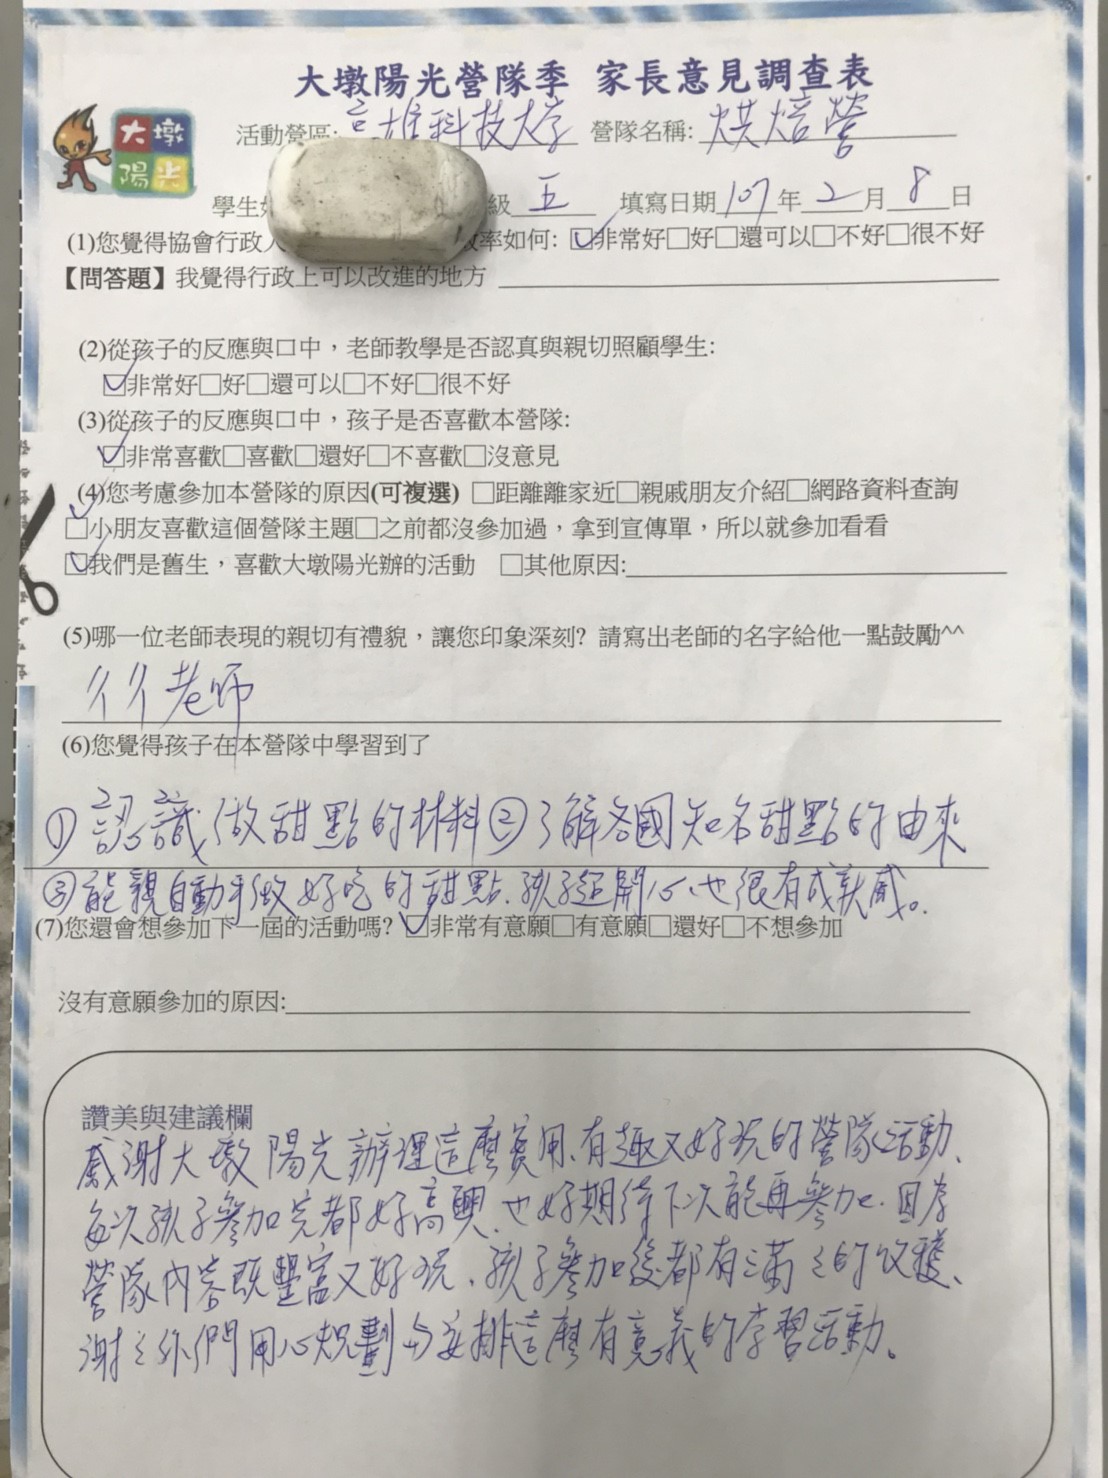 大墩陽光營隊季 家長意見調查表
大墩
陽光
活動營區: 高雄科技大學 營隊名稱: 烘焙營
學生 級 五 填寫日期 107 年 2 月 8 日
(1)您覺得協會行政 效率如何: ☑非常好□好□還可以□不好□很不好
【問答題】我覺得行政上可以改進的地方
(2)從孩子的反應與口中，老師教學是否認真與親切照顧學生:
☑非常好□好□還可以□不好□很不好
(3)從孩子的反應與口中，孩子是否喜歡本營隊:
☑非常喜歡□喜歡□還好□不喜歡□沒意見
(4)您考慮參加本營隊的原因(可複選) □距離離家近□親戚朋友介紹□網路資料查詢
☑小朋友喜歡這個營隊主題□之前都沒參加過，拿到宣傳單，所以就參加看看
☑我們是舊生，喜歡大墩陽光辦的活動 □其他原因:
(5)哪一位老師表現的親切有禮貌，讓您印象深刻? 請寫出老師的名字給他一點鼓勵^^
老師
(6)您覺得孩子在本營隊中學習到了
①認識做甜點的材料②了解各國知名甜點的由來
③能親自動手做好吃的甜點、孩子超開心也很有成就感。
(7)您還會想參加下一屆的活動嗎? ☑非常有意願□有意願□還好□不想參加
沒有意願參加的原因:
讚美與建議欄
感謝大墩陽光辦理這麼實用、有趣又好玩的營隊活動、
每次孩子參加完都好高興、也好期待下次能再參加、因為
營隊內容既豐富又好玩、孩子參加後都有滿滿的收穫、
謝謝你們用心規劃與安排這麼有意義的學習活動。